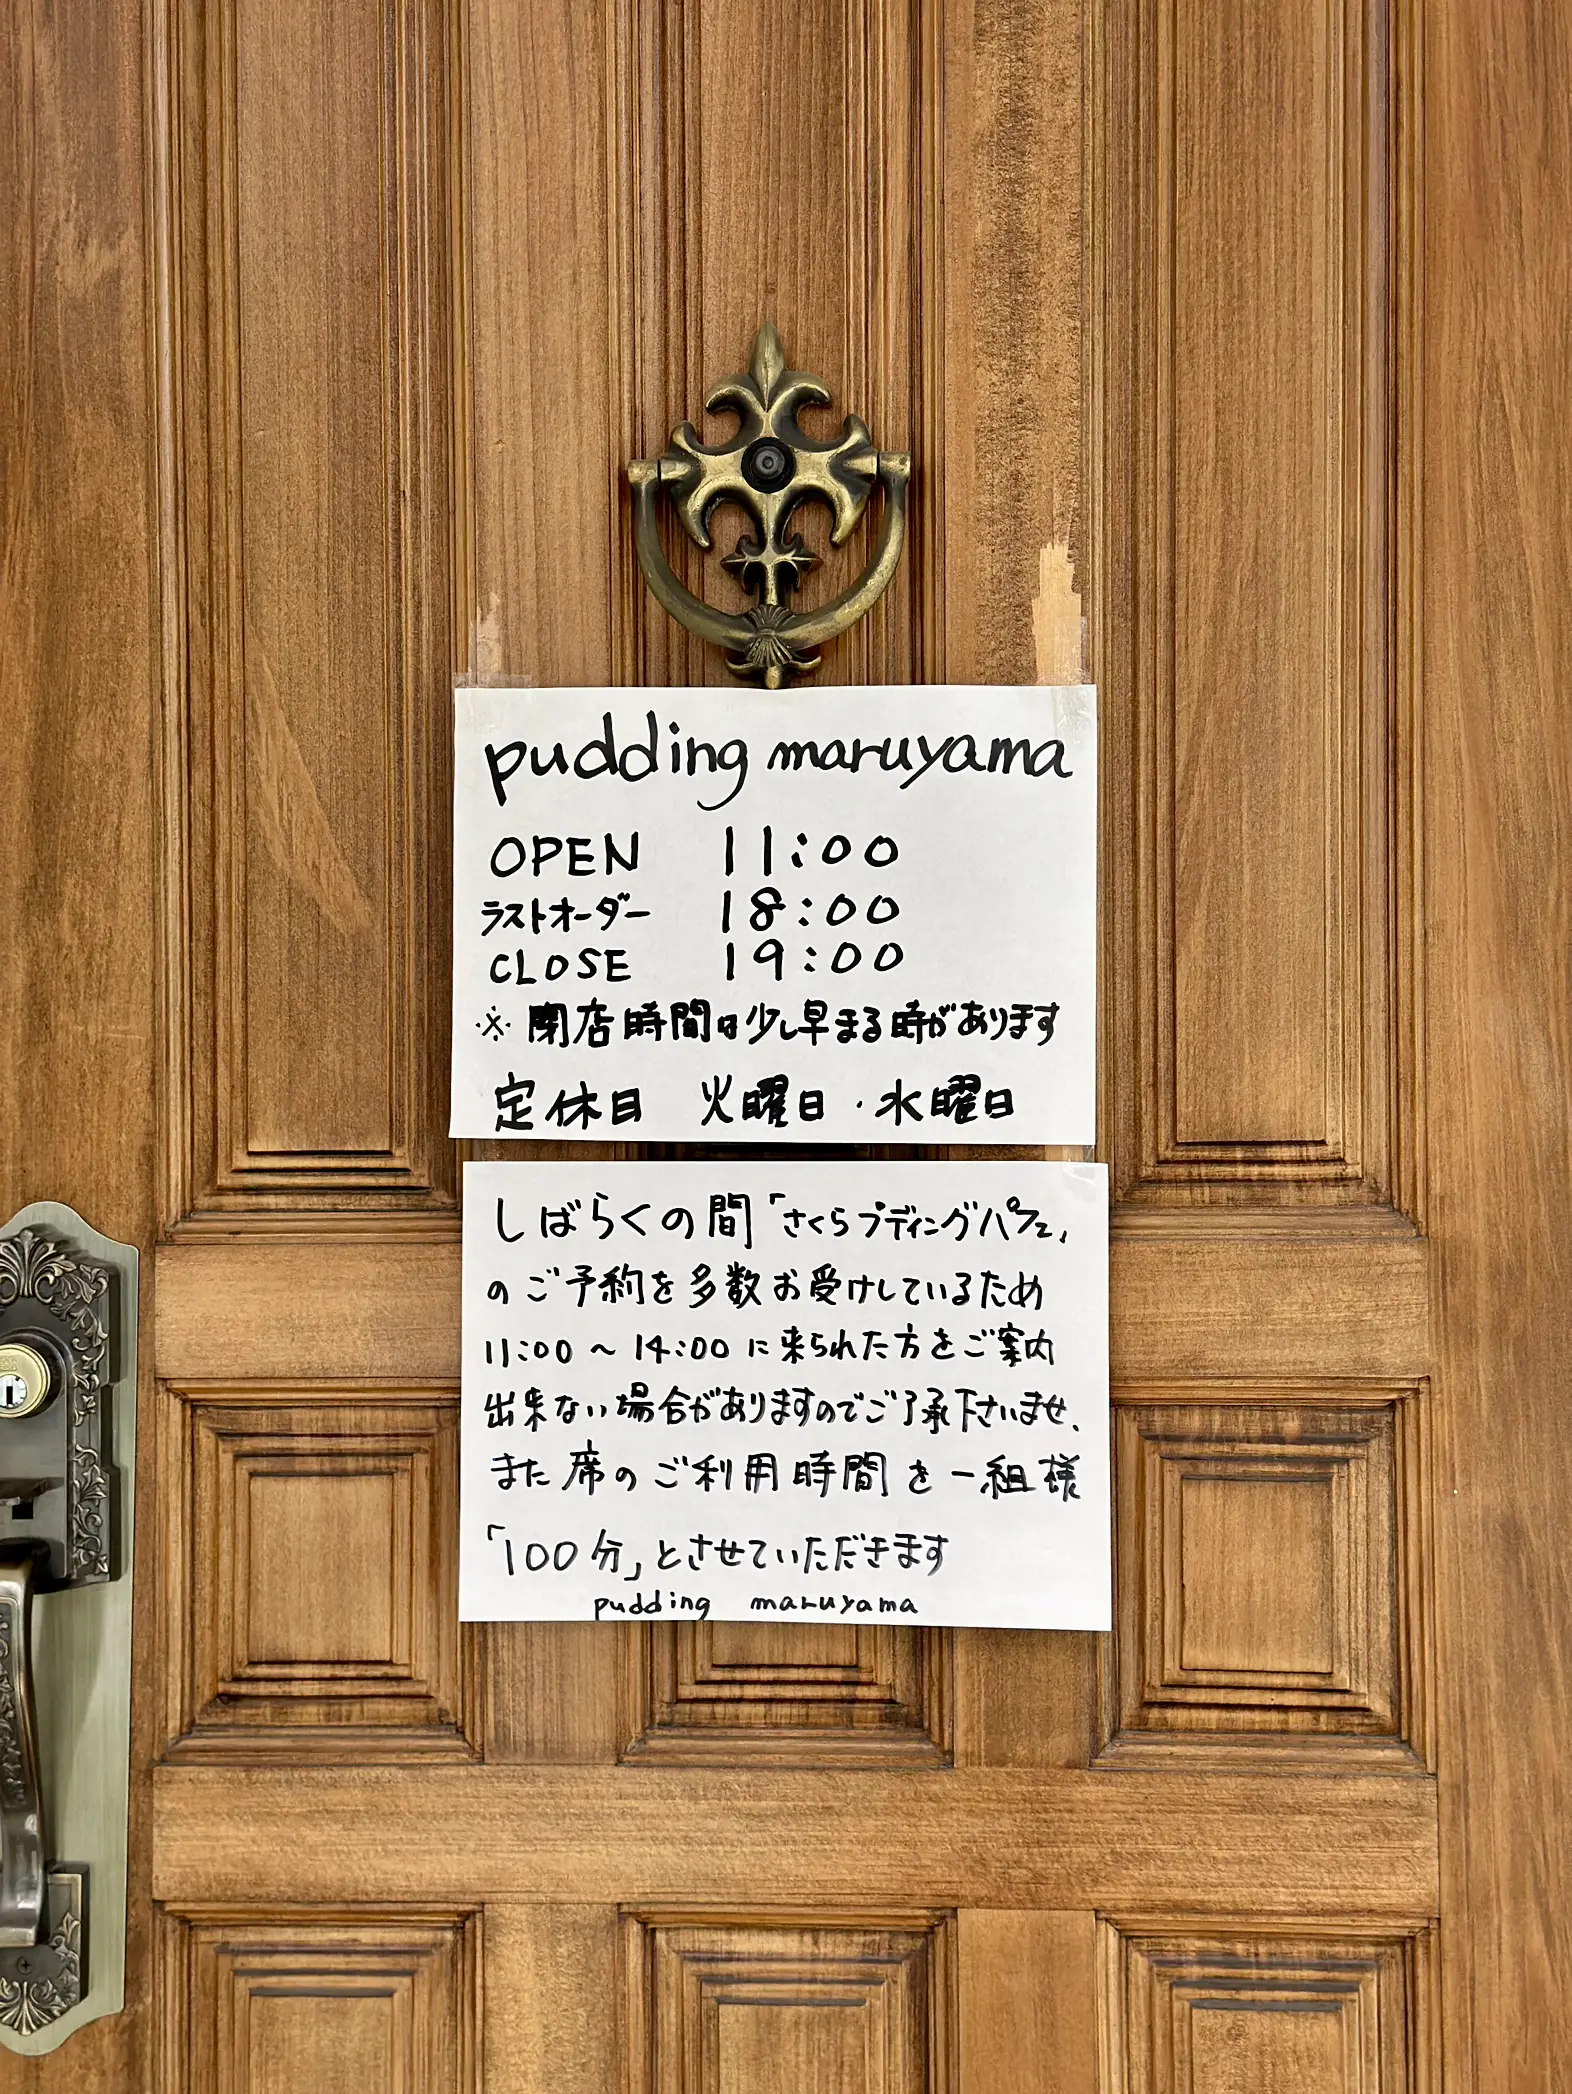 pudding maruyama
OPEN 11:00
ラストオーダー 18:00
CLOSE 19:00
※ 閉店時間は少し早まる時があります
定休日 火曜日・水曜日
しばらくの間「さくらプディングパフェ」
のご予約を多数お受けしているため
11:00～14:00に来られた方をご案内
出来ない場合がありますのでご了承下さいませ、
また席のご利用時間を一組様
「100分」とさせていただきます
pudding maruyama